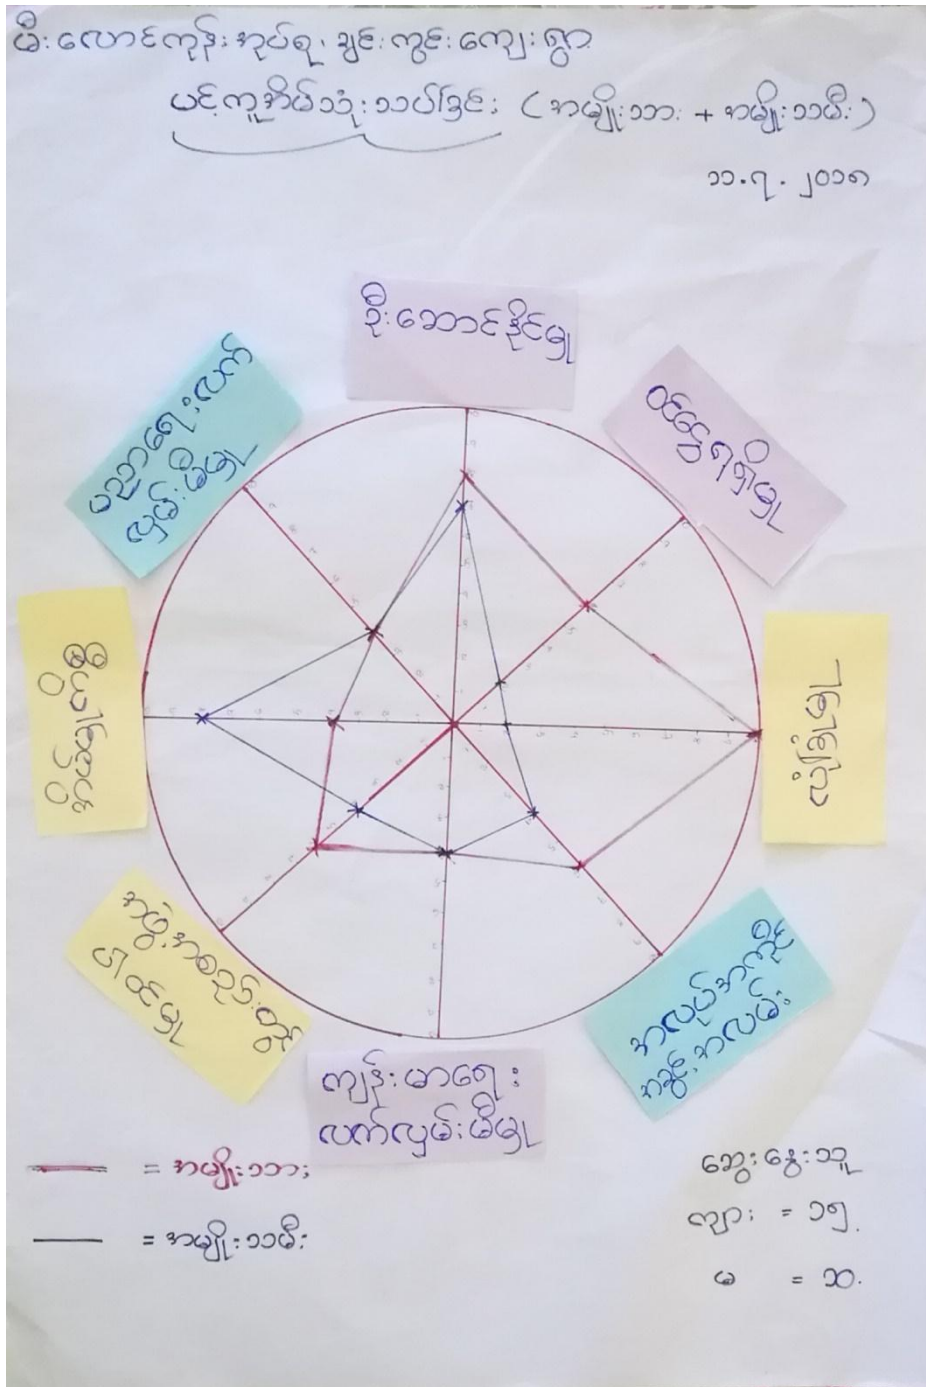 မီးလောင်ကုန်းအုပ်စု၊ ချင်းကွင်းကျေးရွာ
ပင့်ကူအိမ်သုံးသပ်ခြင်း (အမျိုးသား + အမျိုးသမီး)
၁၁.၇.၂၀၁၈
ဦးဆောင်နိုင်မှု
ဝင်ငွေရရှိမှု
လုံခြုံမှု
အလုပ်အကိုင်
အခွင့်အလမ်း
ကျန်းမာရေး
လက်လှမ်းမီမှု
အဖွဲ့အစည်းတွင်
ပါဝင်မှု
ပညာရေးလက်
လှမ်းမီမှု
= အမျိုးသား
= အမျိုးသမီး
ဆွေးနွေးသူ
ကျား = ၁၅
မ = ၁၁